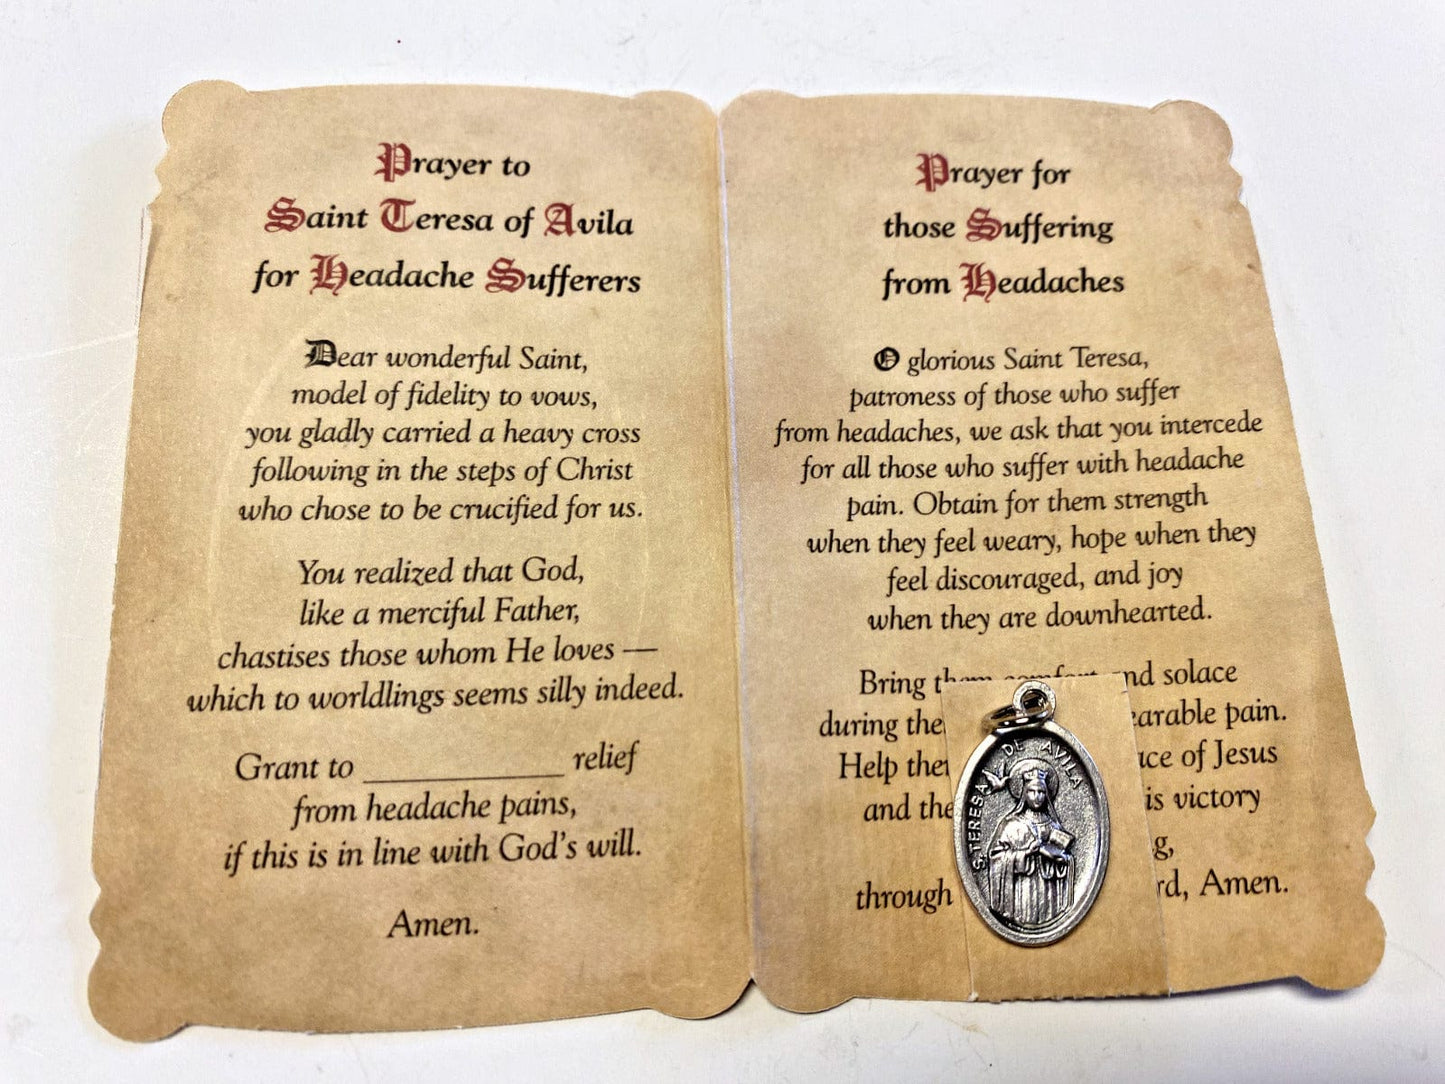 Prayer to
Saint Teresa of Avila
for Headache Sufferers
Dear wonderful Saint,
model of fidelity to vows,
you gladly carried a heavy cross
following in the steps of Christ
who chose to be crucified for us.
You realized that God,
like a merciful Father,
chastises those whom He loves —
which to worldlings seems silly indeed.
Grant to ____________ relief
from headache pains,
if this is in line with God's will.
Amen.
Prayer for
those Suffering
from Headaches
O glorious Saint Teresa,
patroness of those who suffer
from headaches, we ask that you intercede
for all those who suffer with headache
pain. Obtain for them strength
when they feel weary, hope when they
feel discouraged, and joy
when they are downhearted.
Bring them comfort and solace
during pain.
Help of Jesus
and victory
through Amen.
S. TERESA DE AVILA